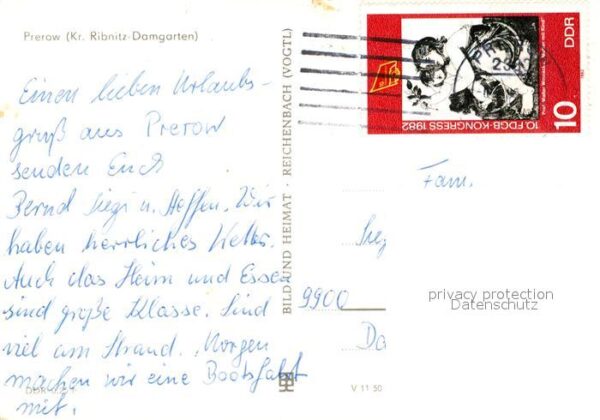 Prerow (Kr. Ribnitz-Damgarten)
Einen lieben Urlaubs-
gruß aus Prerow
senden Euch
Bernd Siegi u. Steffen. Wir
haben herrliches Wetter.
Auch das Heim und Essen
sind große Klasse. Sind
viel am Strand. Morgen
machen wir eine Bootsfahrt
mit.
V 11 50
BILD UND HEIMAT · REICHENBACH (VOGTL)
DDR
10
10. FDGB-KONGRESS 1982
Fam.
9900
privacy protection
Datenschutz